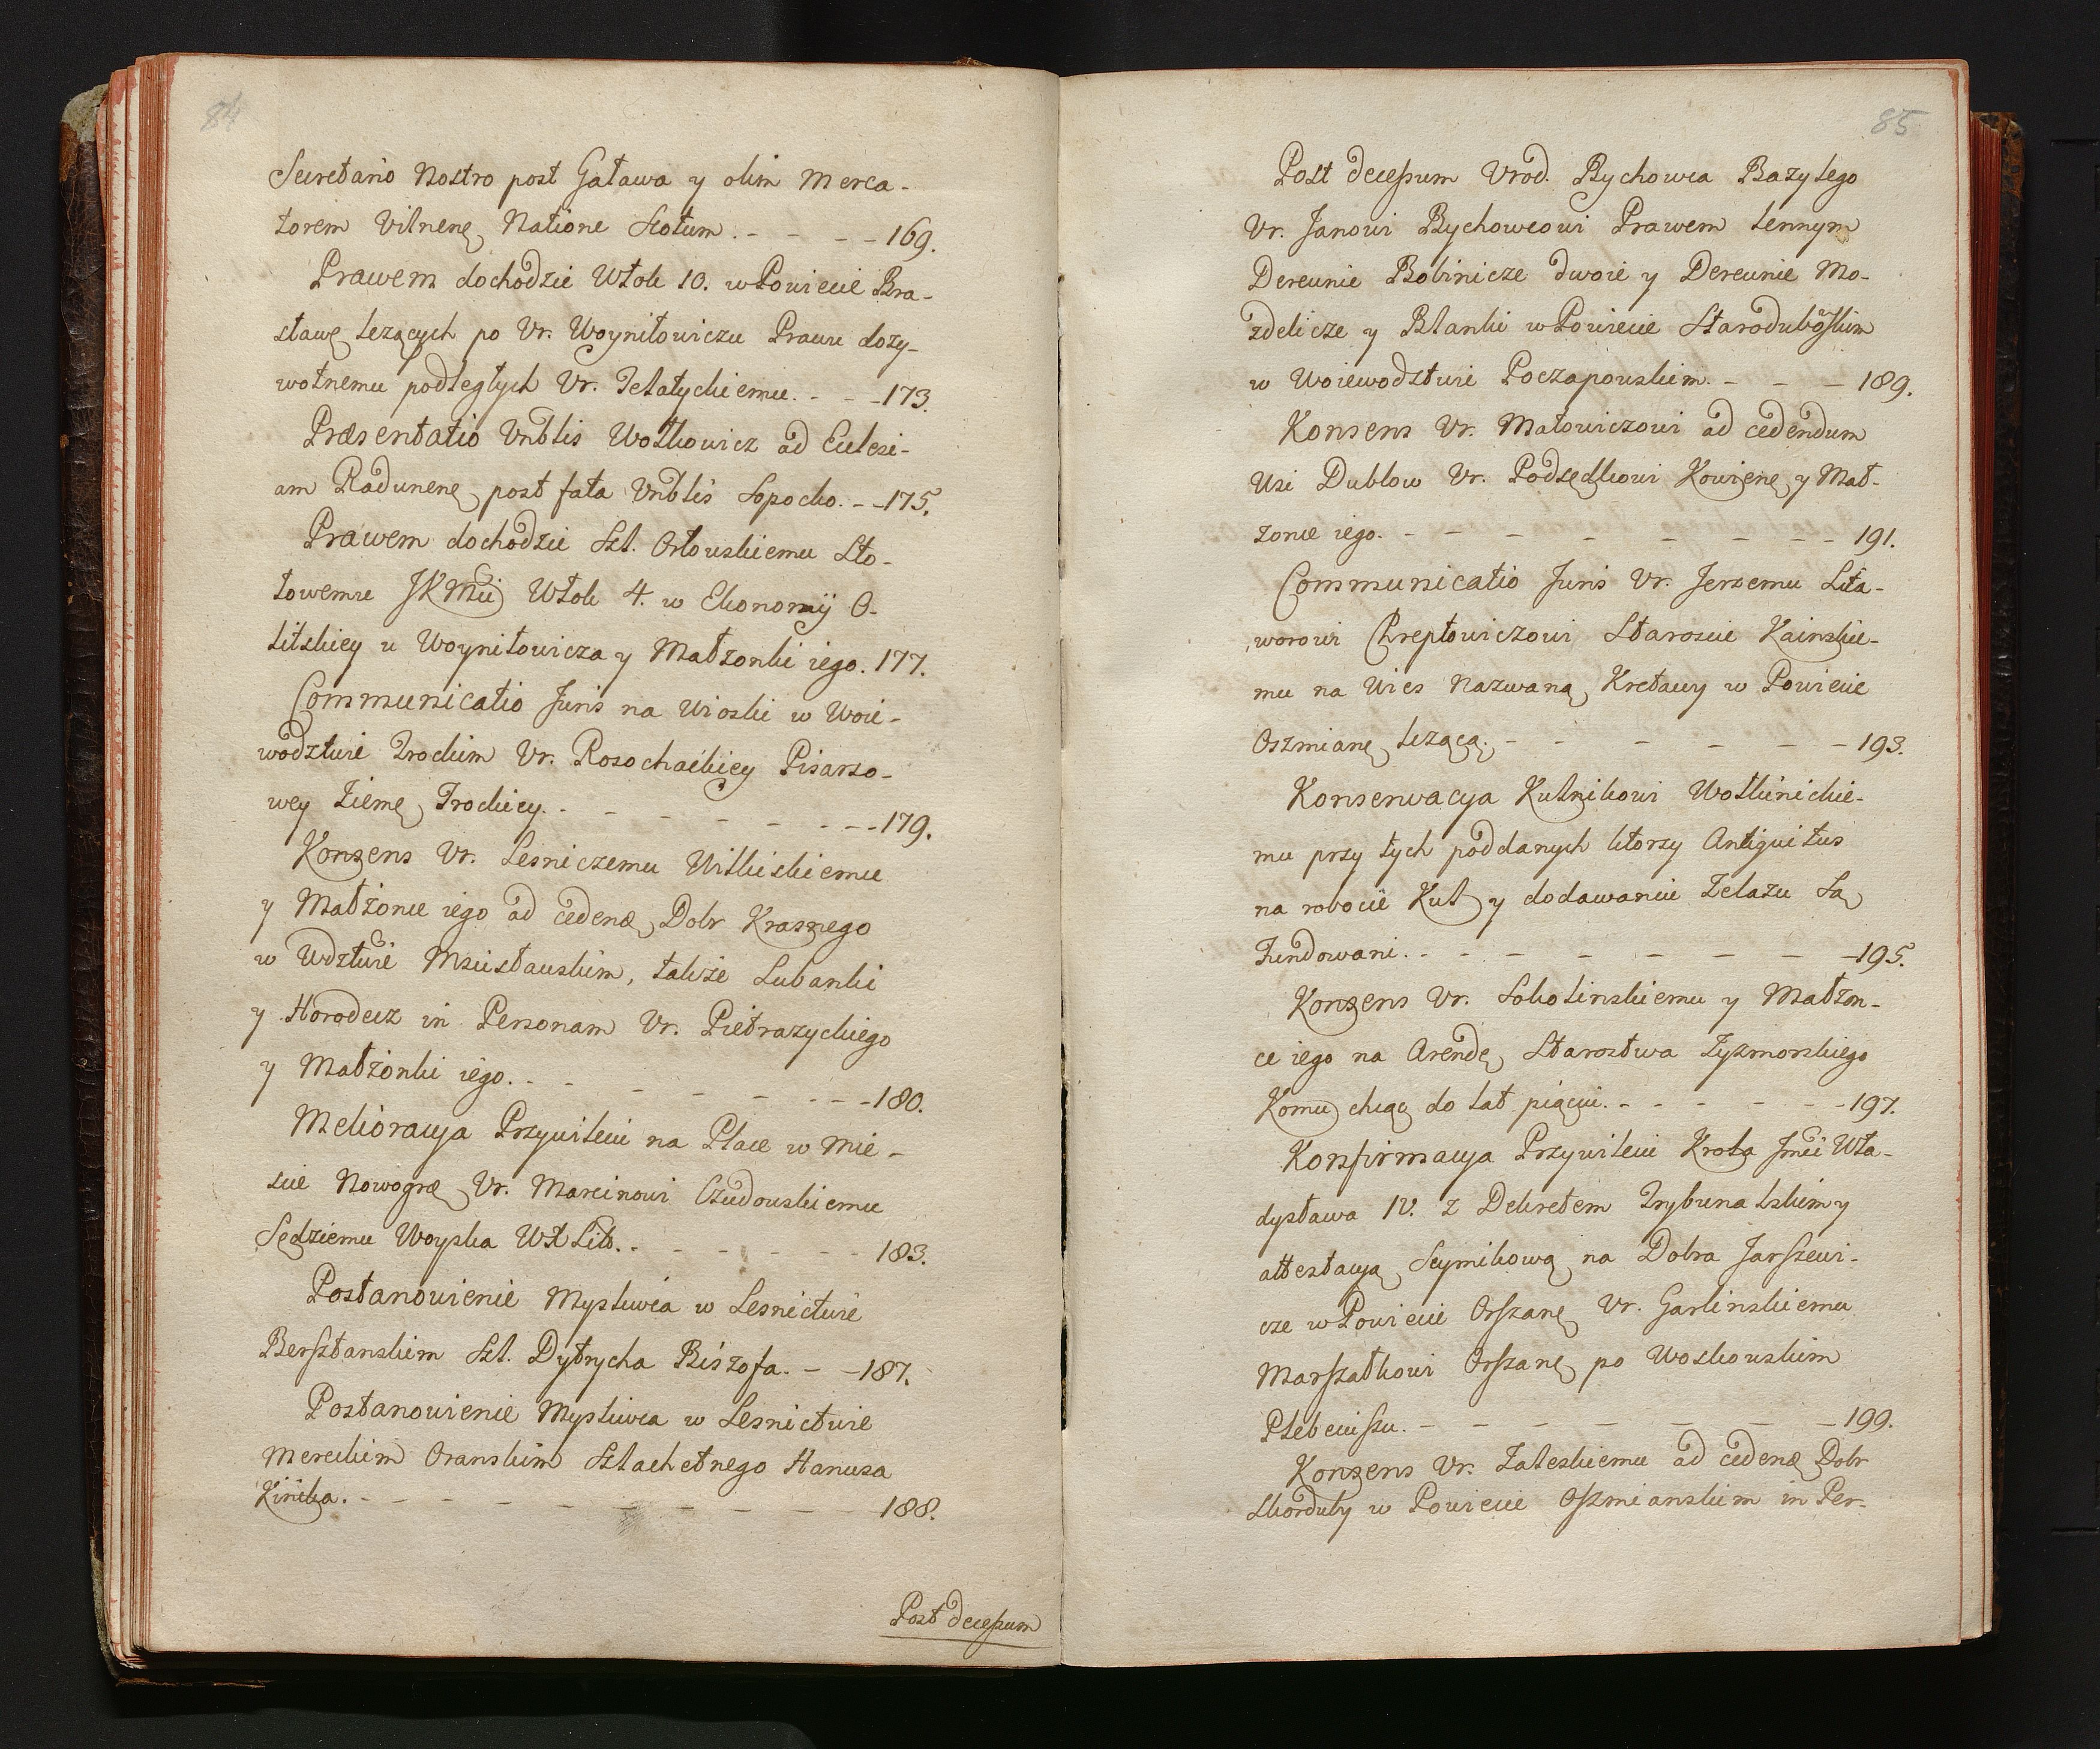 84
Secretario Nostro post Gatawa y olim Merca-
torem Vilnenę Natione Scotum. - - - - 169.
Prawem dochodzie Włok 10. w Powiecie Bra-
sławę leżących po Vr. Woyniłowiczu Prawu doży-
wotnemu podległych Vr. Jelatyckiemu. - - - 173.
Præsentatio Vnblis Wołkowicz ad Eccłesi-
am Radunenę post fata Vnblis Sopocko. - - 175.
Prawem dochodzie Szl. Orłowskiemu Sto-
łowemu JKMći Włok 4. w Ekonomÿ O-
litskiey u Woyniłowicza y Małżonki iego. 177.
Communicatio Juris na Wioski w Woie-
wodztwie Trockim Vr. Rosochackiey Pisarzo-
wey Ziemę Trockiey. - - - - - - - - - 179.
Konsens Vr. Lesniczemu Witkiskiemu
y Małżonce iego ad cedenæ Dobr Krasnego
w Wdztwie Mscisławskim, także Lubanki
y Horodecz in Personam Vr. Pietrazyckiego
y Małżonki iego. - - - - - - - - - 180.
Melioracya Przywileiu na Place w Mie-
scie Nowogræ Vr. Marcinowi Czudowskiemu
Sędziemu Woyska WXLit. - - - - - - - 183.
Postanowienie Myśliwca w Lesnictwie
Berſztanskim Szl. Dytrycha Biszofa. - - 187.
Postanowienie Myśliwca w Lesnictwie
Mereckim Oranskim Szlachetnego Hanusa
Kincka. - - - - - - - - - - 188.
Post deceſsum
85
Post deceſsum Vrod. Bychowca Bazylego
Vr. Janowi Bychowcowi Prawem lennym
Derewnie Bobinicze dwoie y Derewnie Mo-
zdelicze y Blanki w Powiecie Starodubowſkim
w Woiewodstwie Poczapowskim. - - - 189.
Konsens Vr. Matowiczowi ad cedendum
Wsi Dublow Vr. Podsędkowi Kowienę y Mał-
żonce iego. - - - - - - - - - 191.
Communicatio Juris Vr. Jerzemu Lita-
worowi Chreptowiczowi Staroscie Kainskie-
mu na Wies Nazwaną Kretawy w Powiecie
Oszmianę leżącą. - - - - - - - 193.
Konserwacya Kuźnikowi Wołkinickie-
mu przy tych poddanych ktorzy Antiquitus
na robocie Kuź y dodawaniu Żelazu Są
Fundowani. - - - - - - - - 195.
Konsens Vr. Sokolinskiemu y Małżon-
ce iego na Arendę Starostwa Żyzmorskiego
Komu chcąc do lat pięciu. - - - - - - 197.
Konfirmacya Przywileiu Krola Jmći Wła-
dysława IV. z Dekretem Trybunalskim y
attestacyą Seymikową na Dobra Jarſzewi-
cze w Powiecie Orſzanę Vr. Garlinskiemu
Marſzałkowi Orſzanę po Woskowskim
Plebeiuſzu. - - - - - - - 199.
Konsens Vr. Zaleskiemu ad cedenæ Dobr
Skorduby w Powiecie Oſzmianskim in Per-